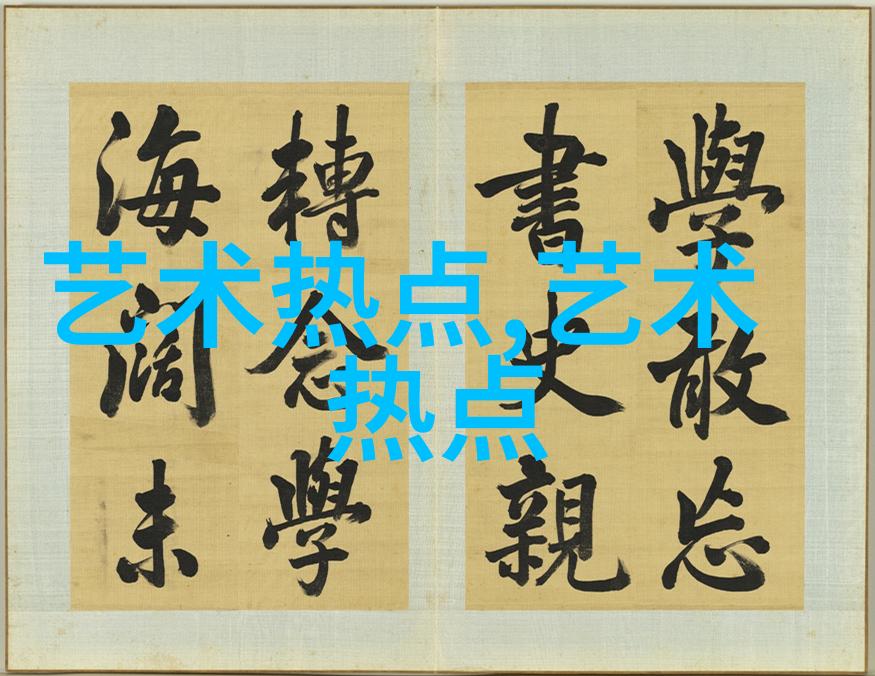 學敢忘
書史親
轉念學
海闊未
艺术热点,艺术
热点